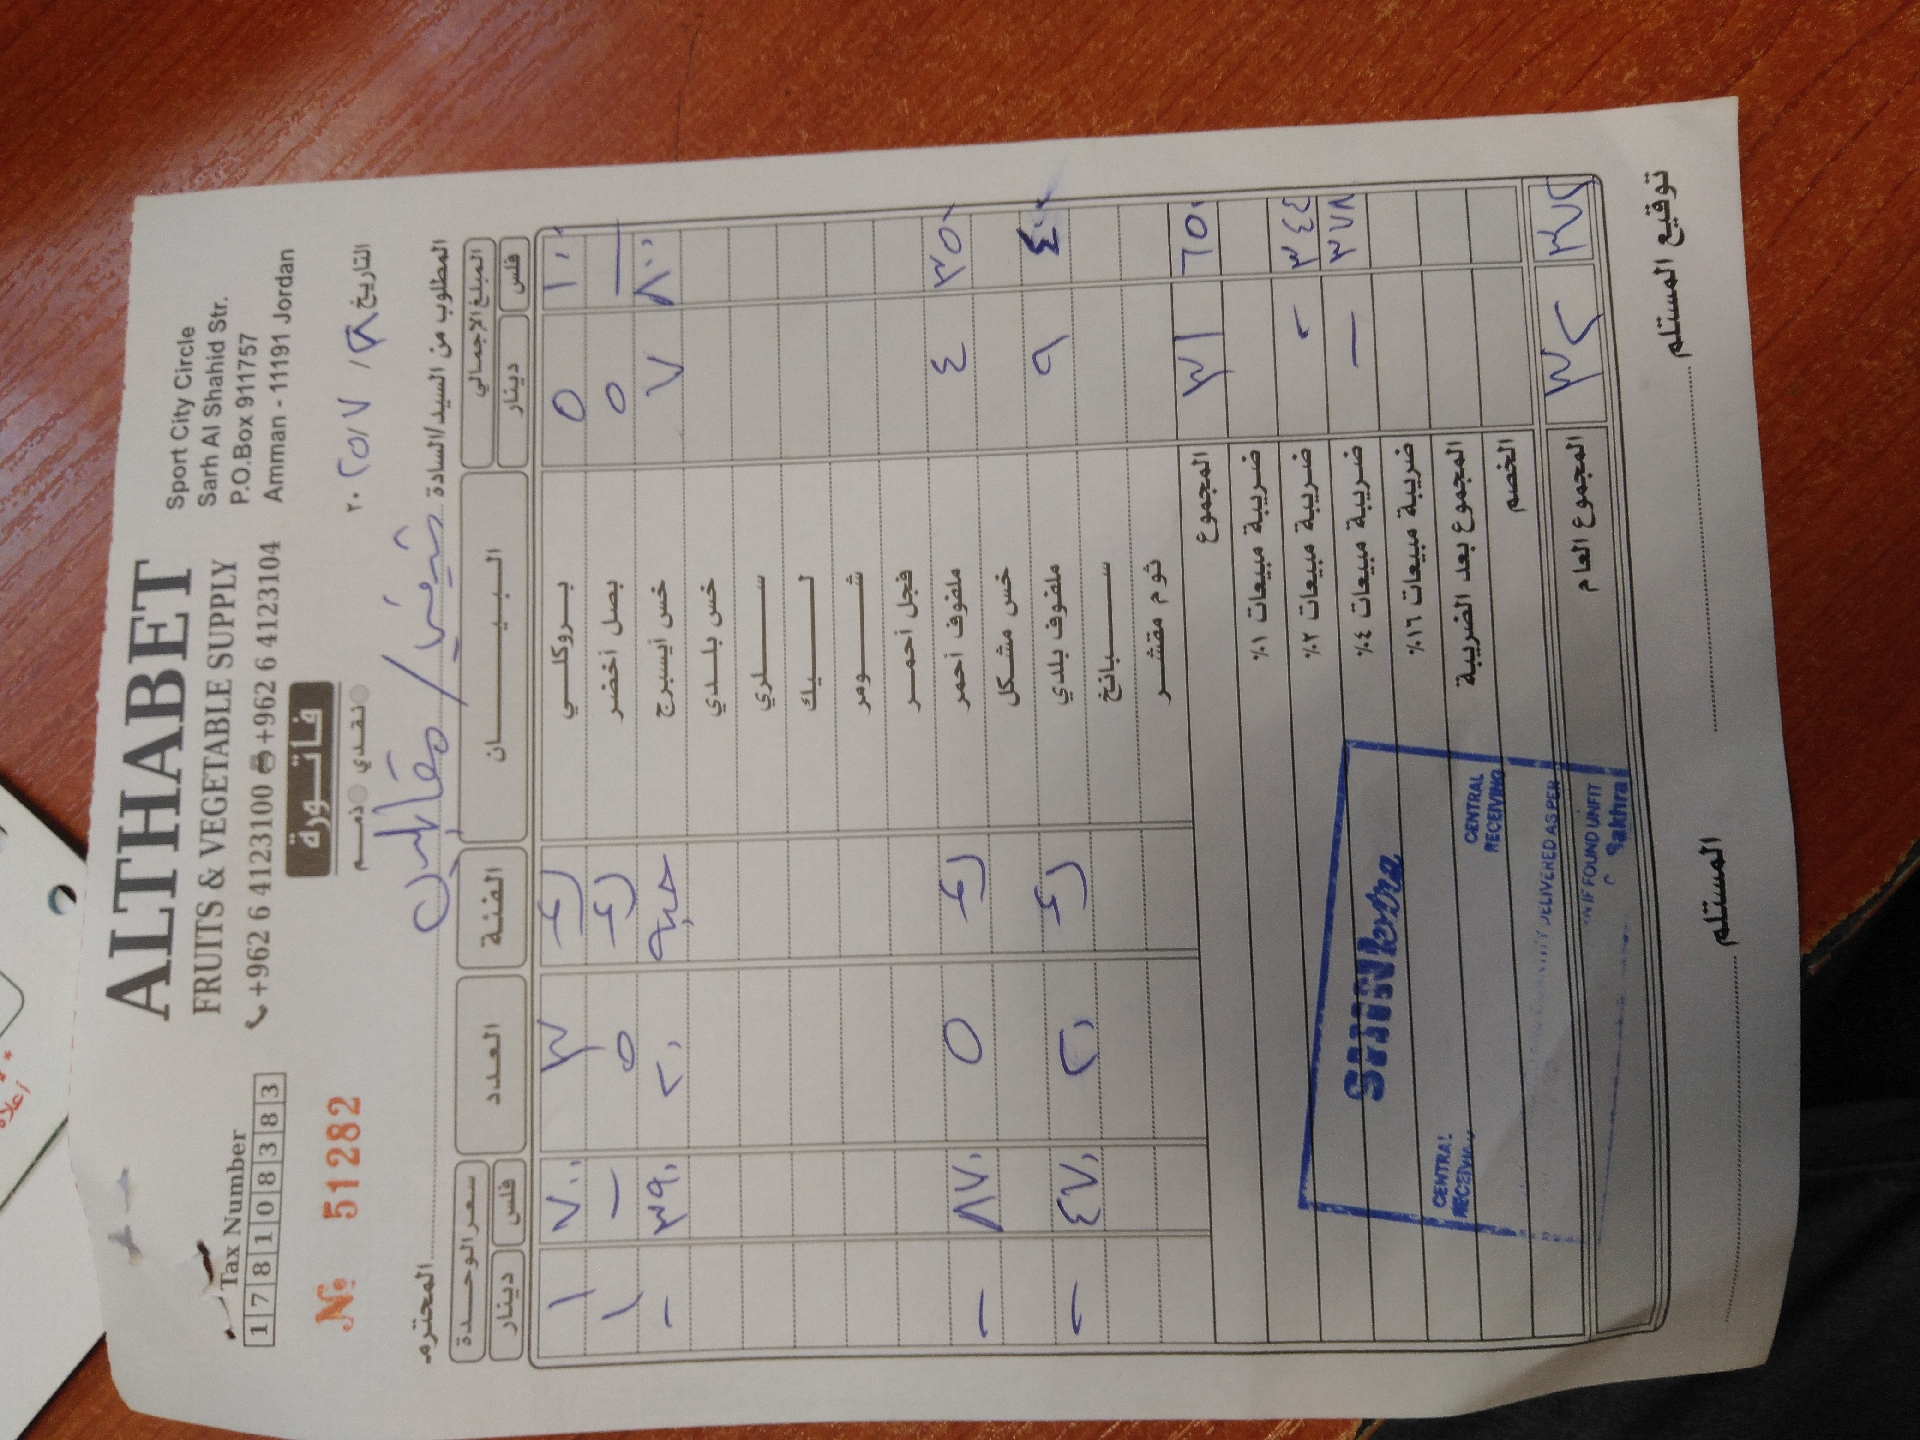 ALTHABET
FRUITS & VEGETABLE SUPPLY
+962 6 4123100 +962 6 4123104
Sport City Circle
Sarh Al Shahid Str.
P.O.Box 911757
Amman - 11191 Jordan
Tax Number
178108383
فاتورة
نقدي ذمم
№ 511282
التاريخ / ٧ / ٢٠
المطلوب من السيد/السادة المحترم
المبلغ الإجمالي البيان الفئة العدد سعر الوحدة
فلس دينار فلس دينار
بروكلي ٥ ١٠٠ كغ ٣ ١ ٧٠٠
بصل أخضر ٥ — كغ ٥ ١ —
خس ايسبرج ٧ ٨٠٠ حبة ٢٠ - ٣٩٠
خس بلدي
سلري
ليك
شومر
فجل أحمر
ملفوف أحمر ٤ ٣٥٠ كغ ٥ - ٨٧٠
خس مشكل
ملفوف بلدي ٩ ٤٠٠ كغ ٢٠ - ٤٧٠
سبانخ
ثوم مقشر
المجموع ٣١ ٦٥٠
ضريبة مبيعات ١٪
ضريبة مبيعات ٢٪ - ٣٤٤
ضريبة مبيعات ٤٪ - ٣٧٨
ضريبة مبيعات ١٦٪
المجموع بعد الضريبة
الخصم
المجموع العام ٣٢ ٣٧٢
CENTRAL RECEIVING
CENTRAL
DELIVERED AS PER
IF FOUND UNFIT
توقيع المستلم
المستلم